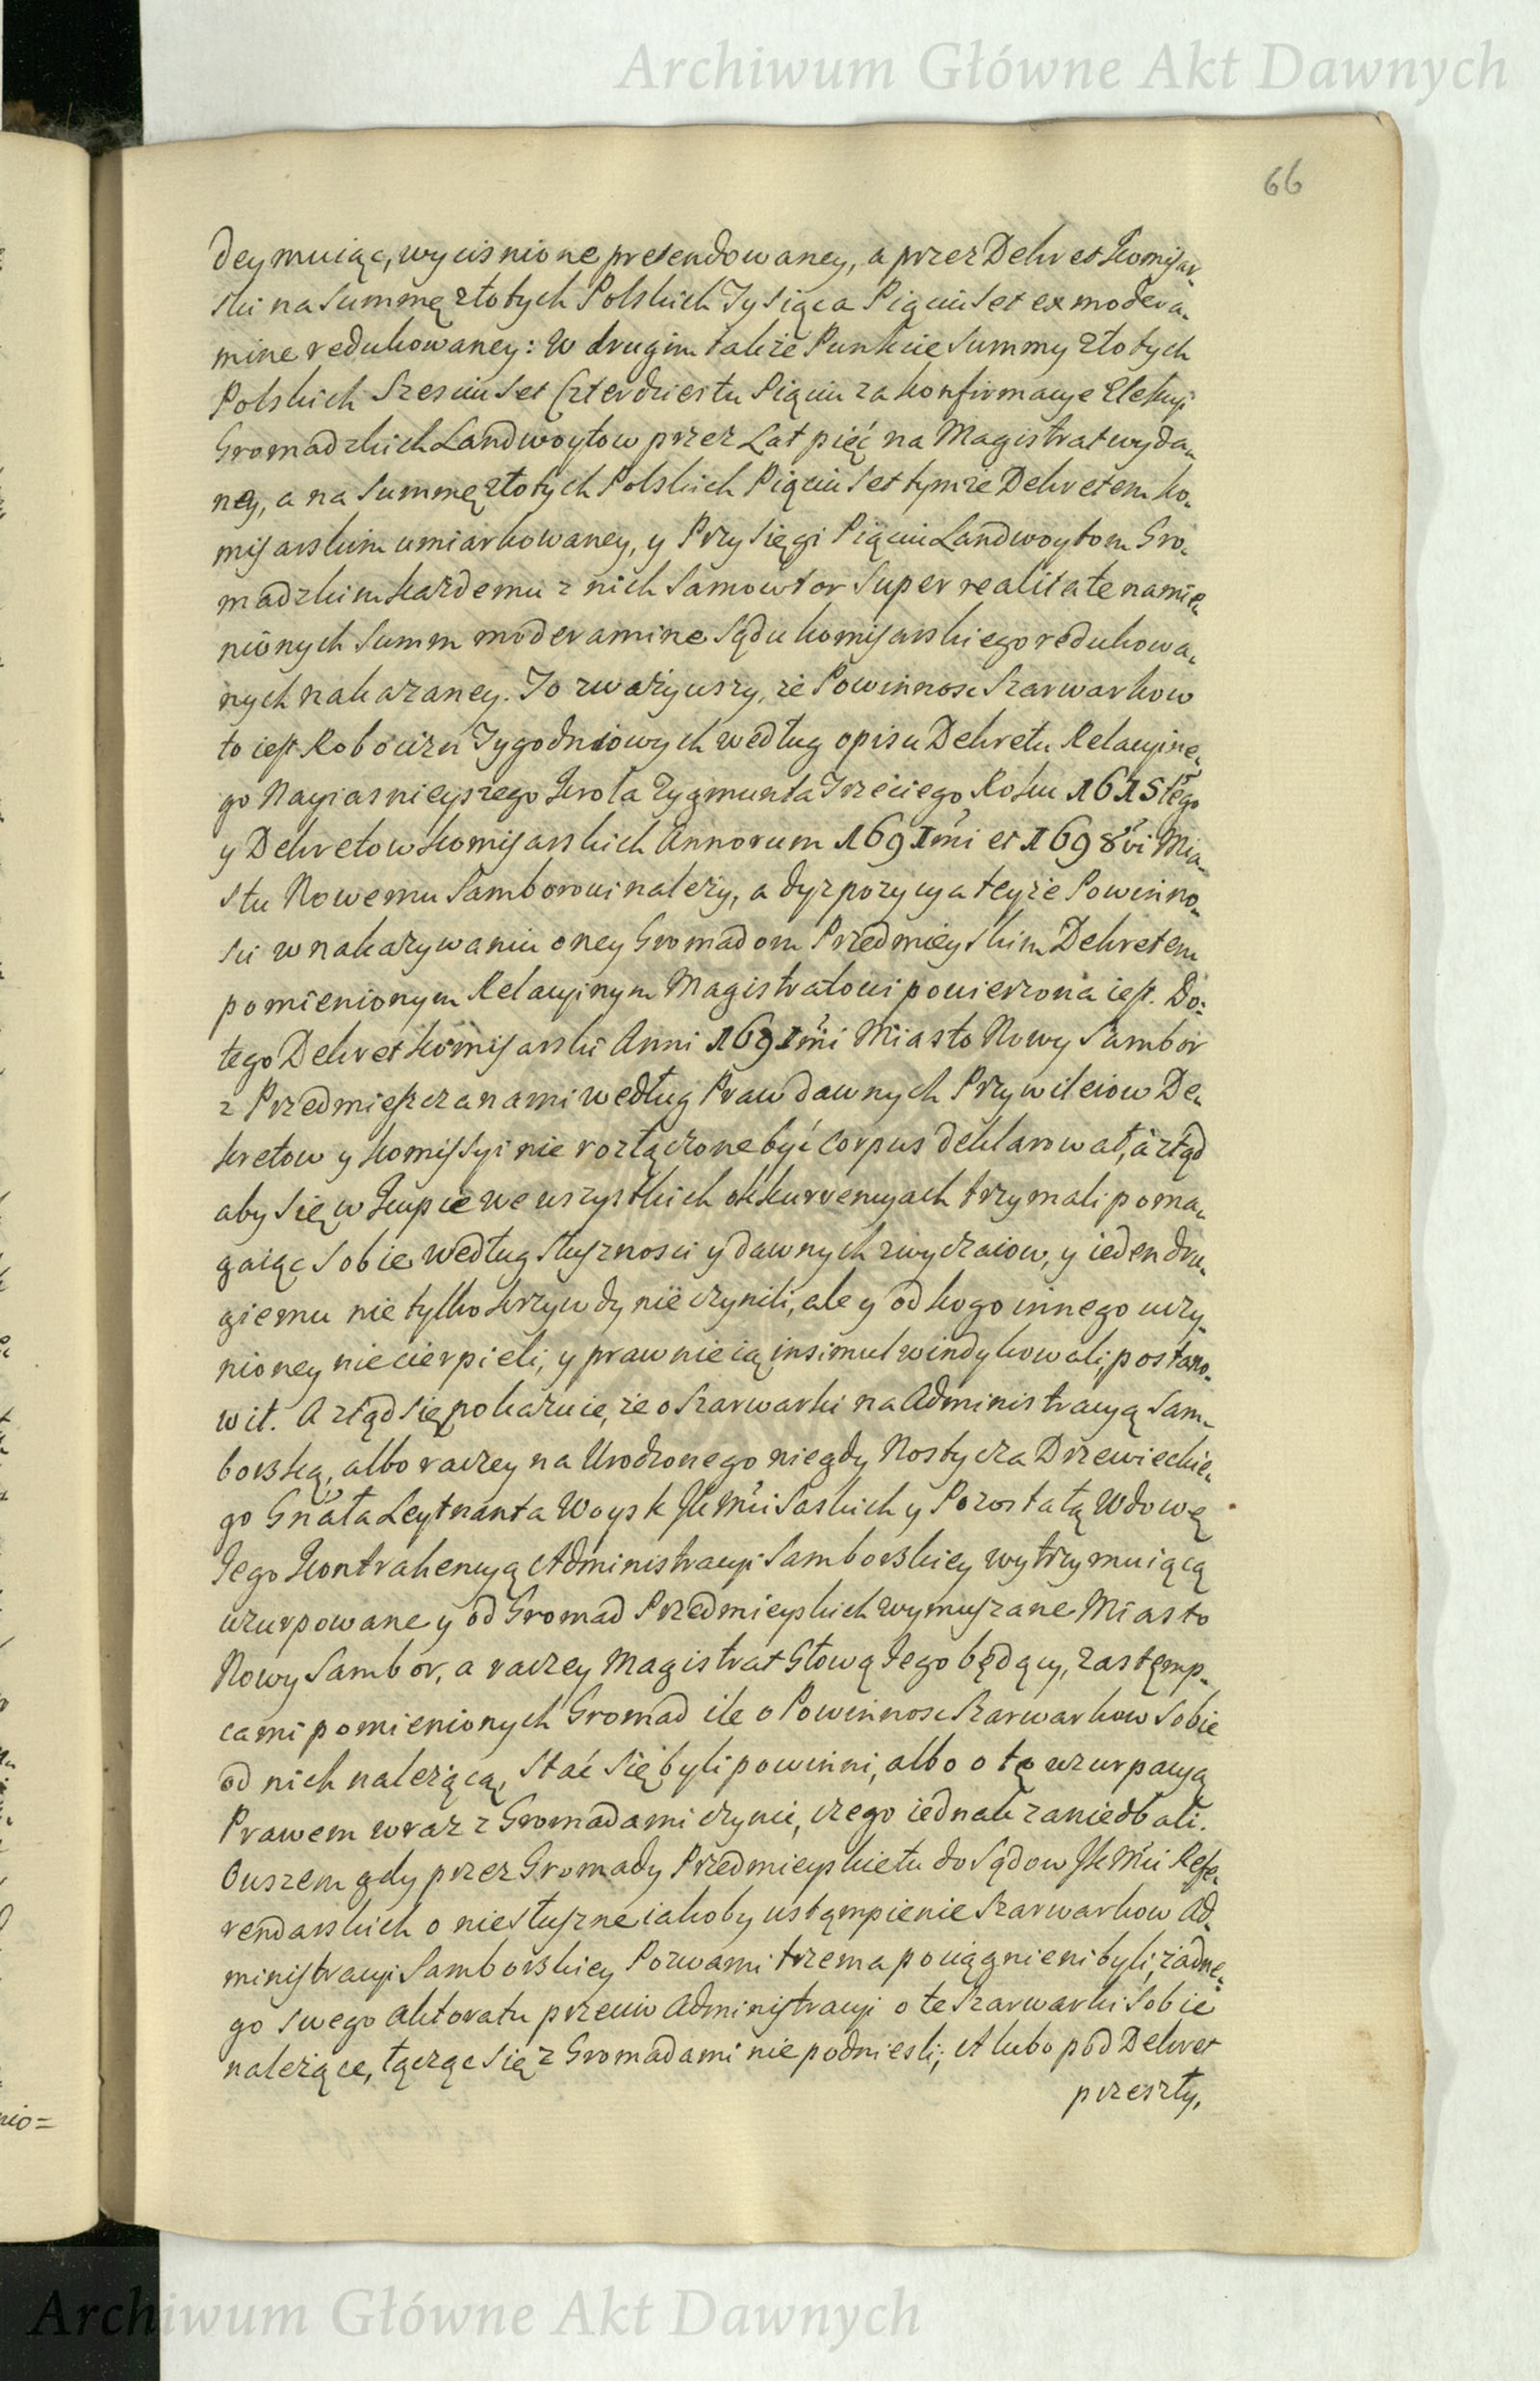 Archiwum Główne Akt Dawnych
66
deymuiąc, wyciśnione pretendowaney, a przez Dekret Komisar„
ski na Summę złotych Polskich Tysiąca Pięciuset ex modera„
mine redukowaney: W drugim także Punkcie Summy złotych
Polskich Szesciuset Czterdziestu Pięciu za konfirmacye Elekcyi
Gromadzkich Landwoytow przez Lat pięć na Magistrat wyda„
ney, a na Summę złotych Polskich Pięciuset tymże Dekretem Ko„
misarskim umiarkowaney, y Przysięgi Pięciu Landwoytom Gro„
madzkim każdemu z nich Samowtor Super realitate namie„
nionych Summ moderamine Sądu Komisarskiego redukowa„
nych nakazaney. To zważywszy, że Powinnosc Szarwarkow
to iest Robocizn Tygodniowych według opisu Dekretu Relacyine„
go Nayiasnieyszego Krola Zygmunta Trzeciego Roku 1615tego
y Dekretow Komisarskich Annorum 1691mi et 1698vi Mia„
stu Nowemu Samborowi należy, a dyzpozycya teyże Powinno„
sci w nakazywaniu oney Gromadom Przedmieyskim Dekretem
pomienionym Relacyinym Magistratowi powierzona iest. Do„
tego Dekret Komisarski Anni 1691mi Miasto Nowy Sambor
z Przedmieszczanami według Praw dawnych Przywileiow De„
kretow y Komissyi nie rozłączone być Corpus deklarował, a ztąd
aby się w Kupie we wszystkich okkurrencyach trzymali poma„
gaiąc sobie według słusznosci y dawnych zwyczaiow, y ieden dru„
giemu nie tylko krzywdy nie czynili, ale y od kogo innego uczy„
nioney niecierpieli, y prawnie ią insimul windykowali, postano„
wił. A ztąd się pokazuie, że o Szarwarki na Administracyą Sam„
borską, albo raczey na Urodzonego niegdy Nostycza Drzewieckie„
go Gnała Leytnanta Woysk JKMci Saskich y Pozostałą Wdowę
Jego Kontrahencyą Administracyi Samborskiey wytrzymuiącą
uzurpowane y od Gromad Przedmieyskich wymuszane Miasto
Nowy Sambor, a raczey Magistrat Głową Jego będący, zastęmp„
cami pomienionych Gromad ile o Powinnosc Szarwarkow sobie
od nich należącą, stać się byli powinni, albo o tę uzurpacyą
Prawem wraz z Gromadami czynić, czego iednak zaniedbali.
Owszem gdy przez Gromady Przedmieyskie tu do Sądow JKMci Refe„
rendarskich o niesłuszne iakoby ustąmpienie Szarwarkow Ad„
ministracyi Samborskiey Pozwami trzema pociągnieni byli, żadne„
go swego Aktoratu przeciw Administracyi o te Szarwarki sobie
należące, łącząc się z Gromadami nie podniesli; A lubo pod Dekret
przeszły,
nio=
Archiwum Główne Akt Dawnych